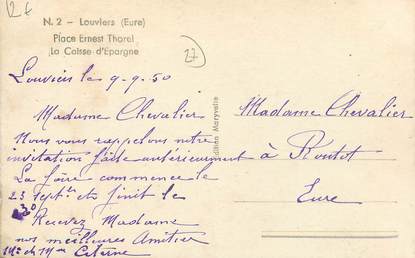 12 f
N. 2 – Louviers (Eure)
Place Ernest Thorel
La Caisse d'Epargne
27
Louviers le 9-9-50
Madame Chevalier
Nous vous rappelons notre
invitation faite antérieurement
La foire commence le
23 septbre et finit le
30
Recevez Madame
nos meilleures Amitier
Mr et Mme Citerne
Edition Maryvette
Madame Chevalier
à Routot
Eure